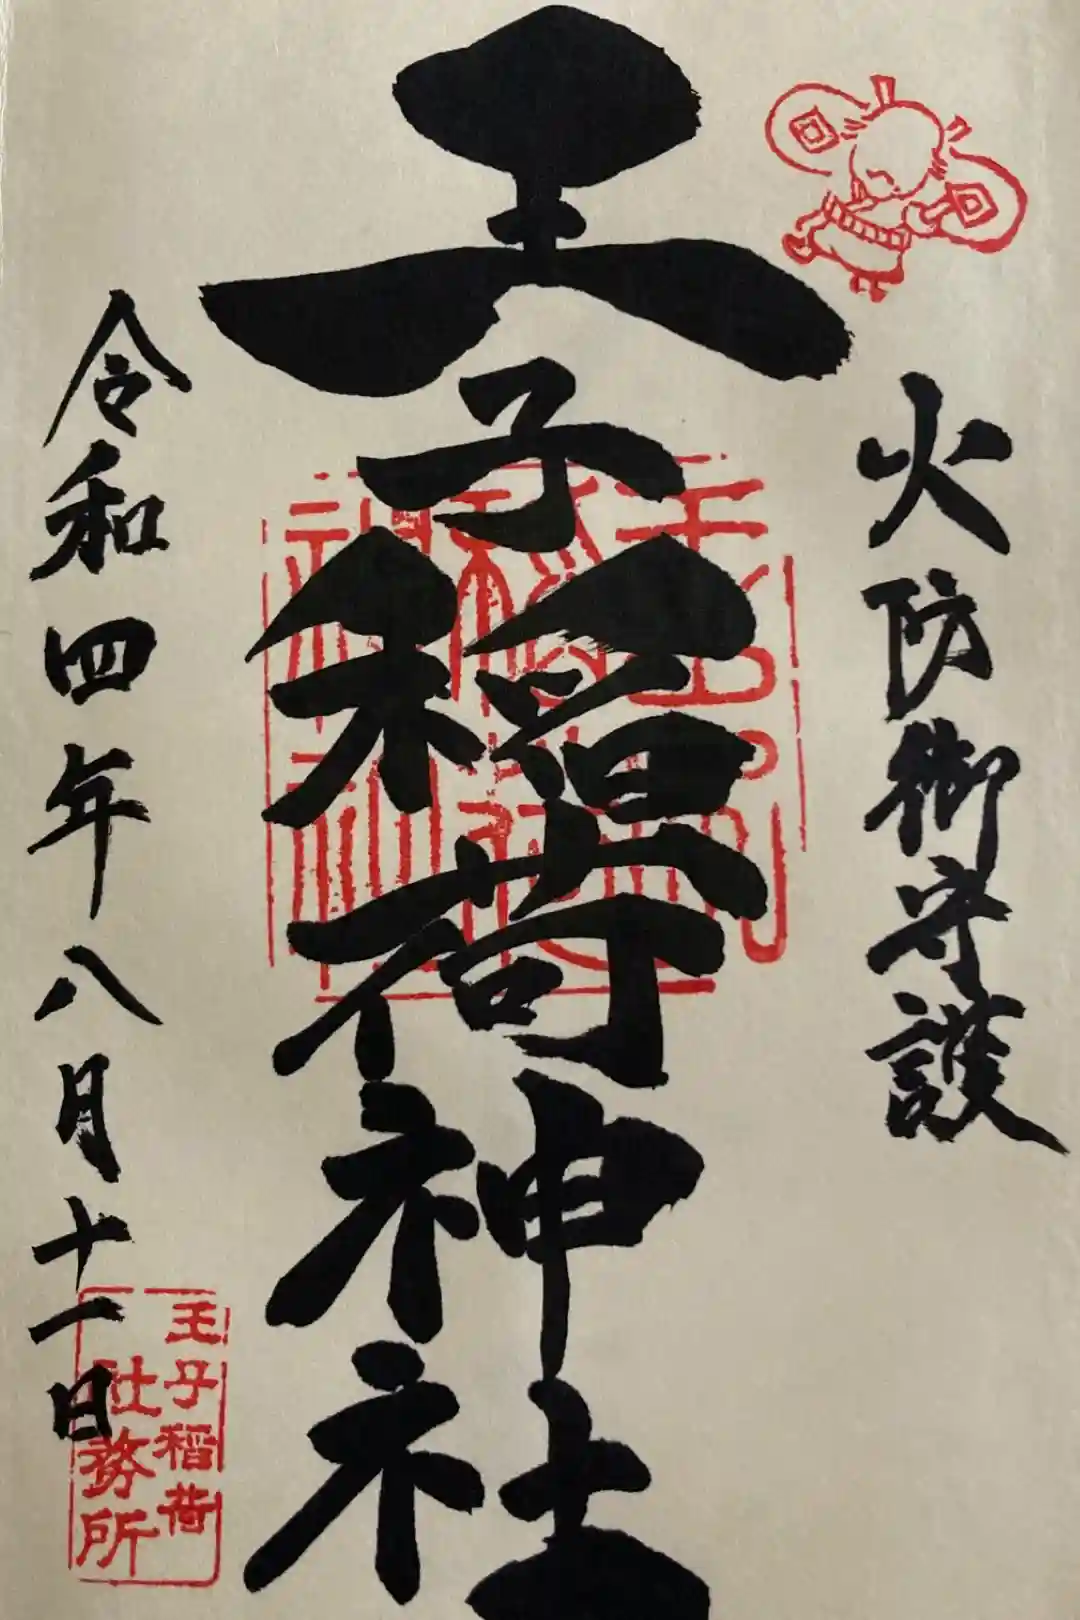 火防御守護
王子稲荷神社
令和四年八月十一日
王子稲荷
社務所